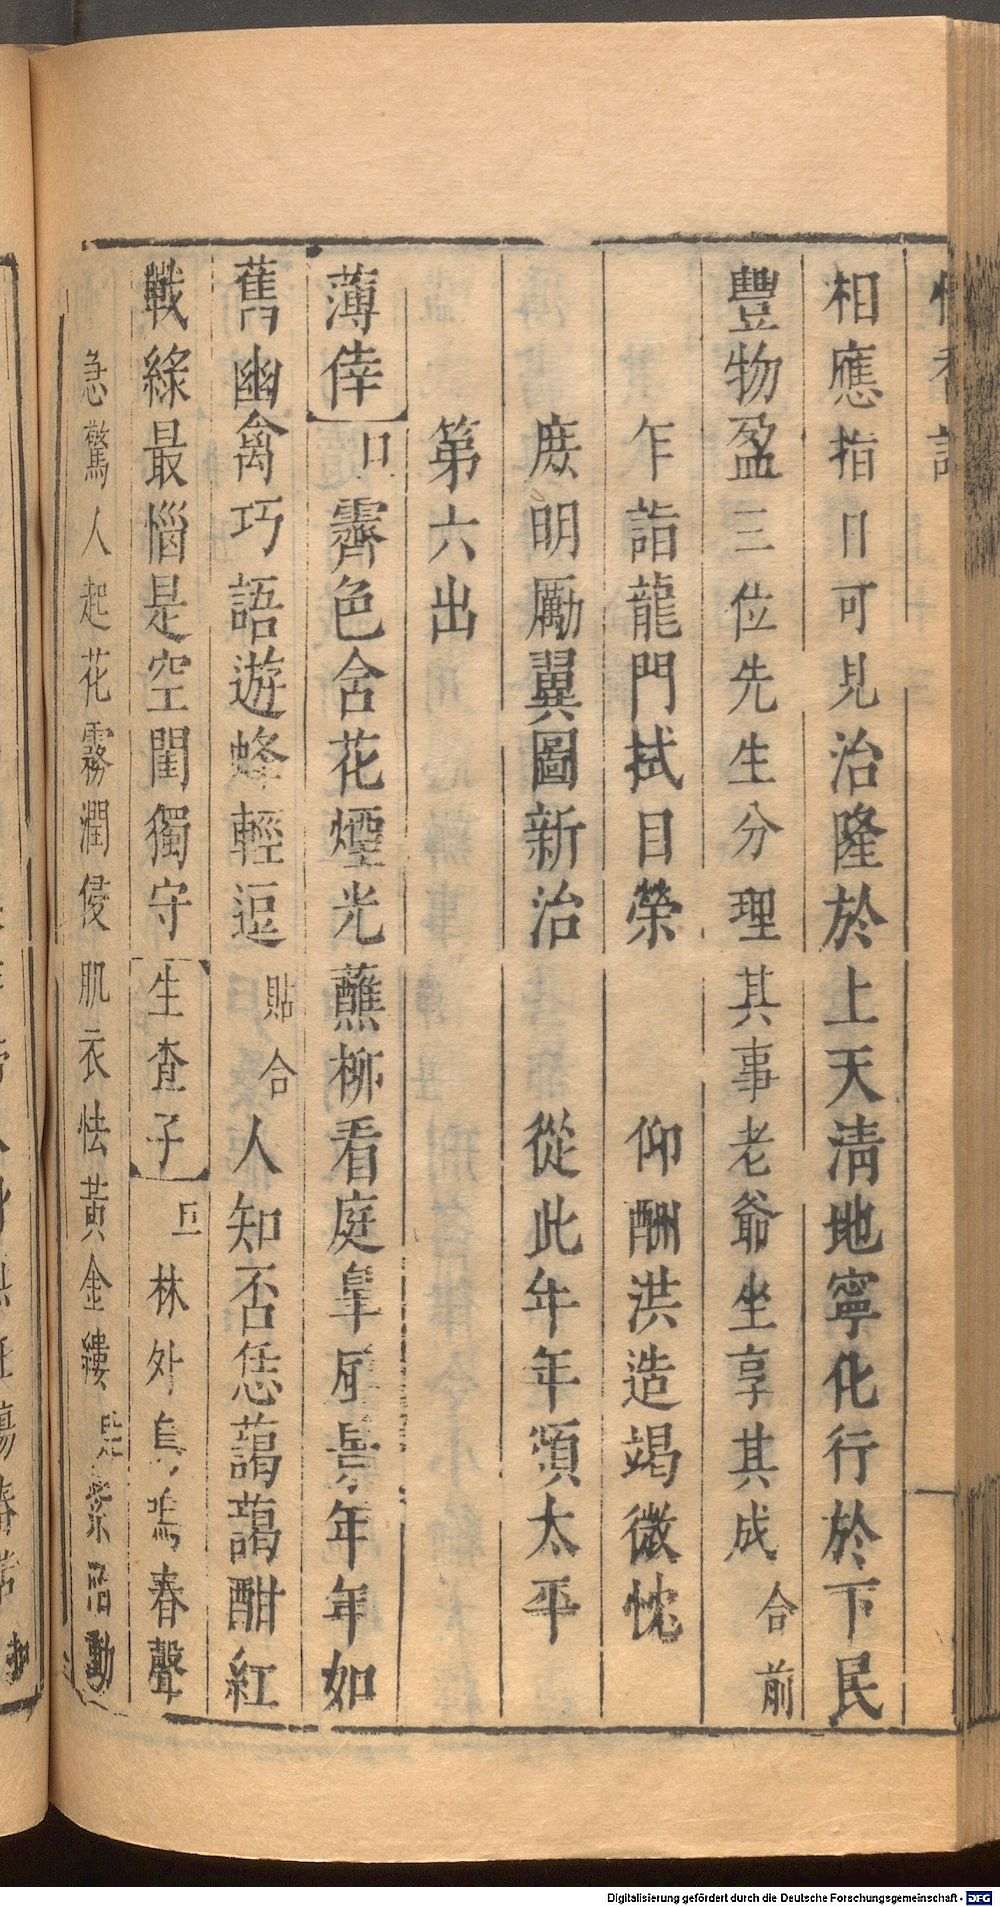 相應指日可見治隆於上天清地寧化行於下民
豐物盈三位先生分理其事老爺坐享其成合前
乍詣龍門拭目榮 仰酬洪造竭微忱
庶明勵翼圖新治 從此年年頌太平
第六出
薄倖 霽色含花煙光蘸柳看庭皐風景年年如
舊幽禽巧語遊蜂輕逗貼合人知否恁藹藹酣紅
戰綠最惱是空閨獨守生查子 林外鳥鳴春聲
急驚人起花霧潤侵肌衣怯黃金縷 紫 動
Digitalisierung gefördert durch die Deutsche Forschungsgemeinschaft - DFG